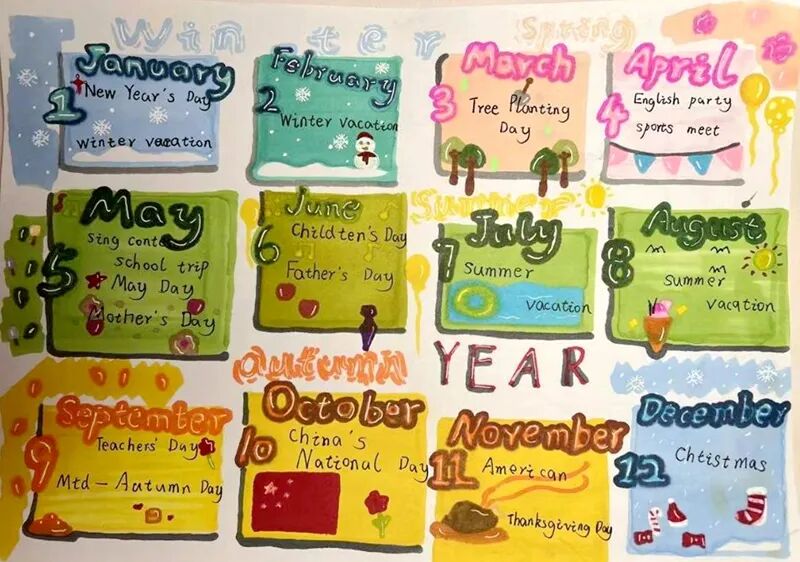 Winter
Spring
January
1
New Year's Day
Winter vacation
February
2
Winter vacation
March
3
Tree Planting
Day
April
4
English party
sports meet
May
5
sing conte
school trip
May Day
Mother's Day
June
6
Children's Day
Father's Day
Summer
July
7
Summer
vacation
August
8
summer
vacation
Autumn
YEAR
September
9
Teachers' Day
Mid-Autumn Day
October
10
China's
National Day
November
11
American
Thanksgiving Day
December
12
Christmas